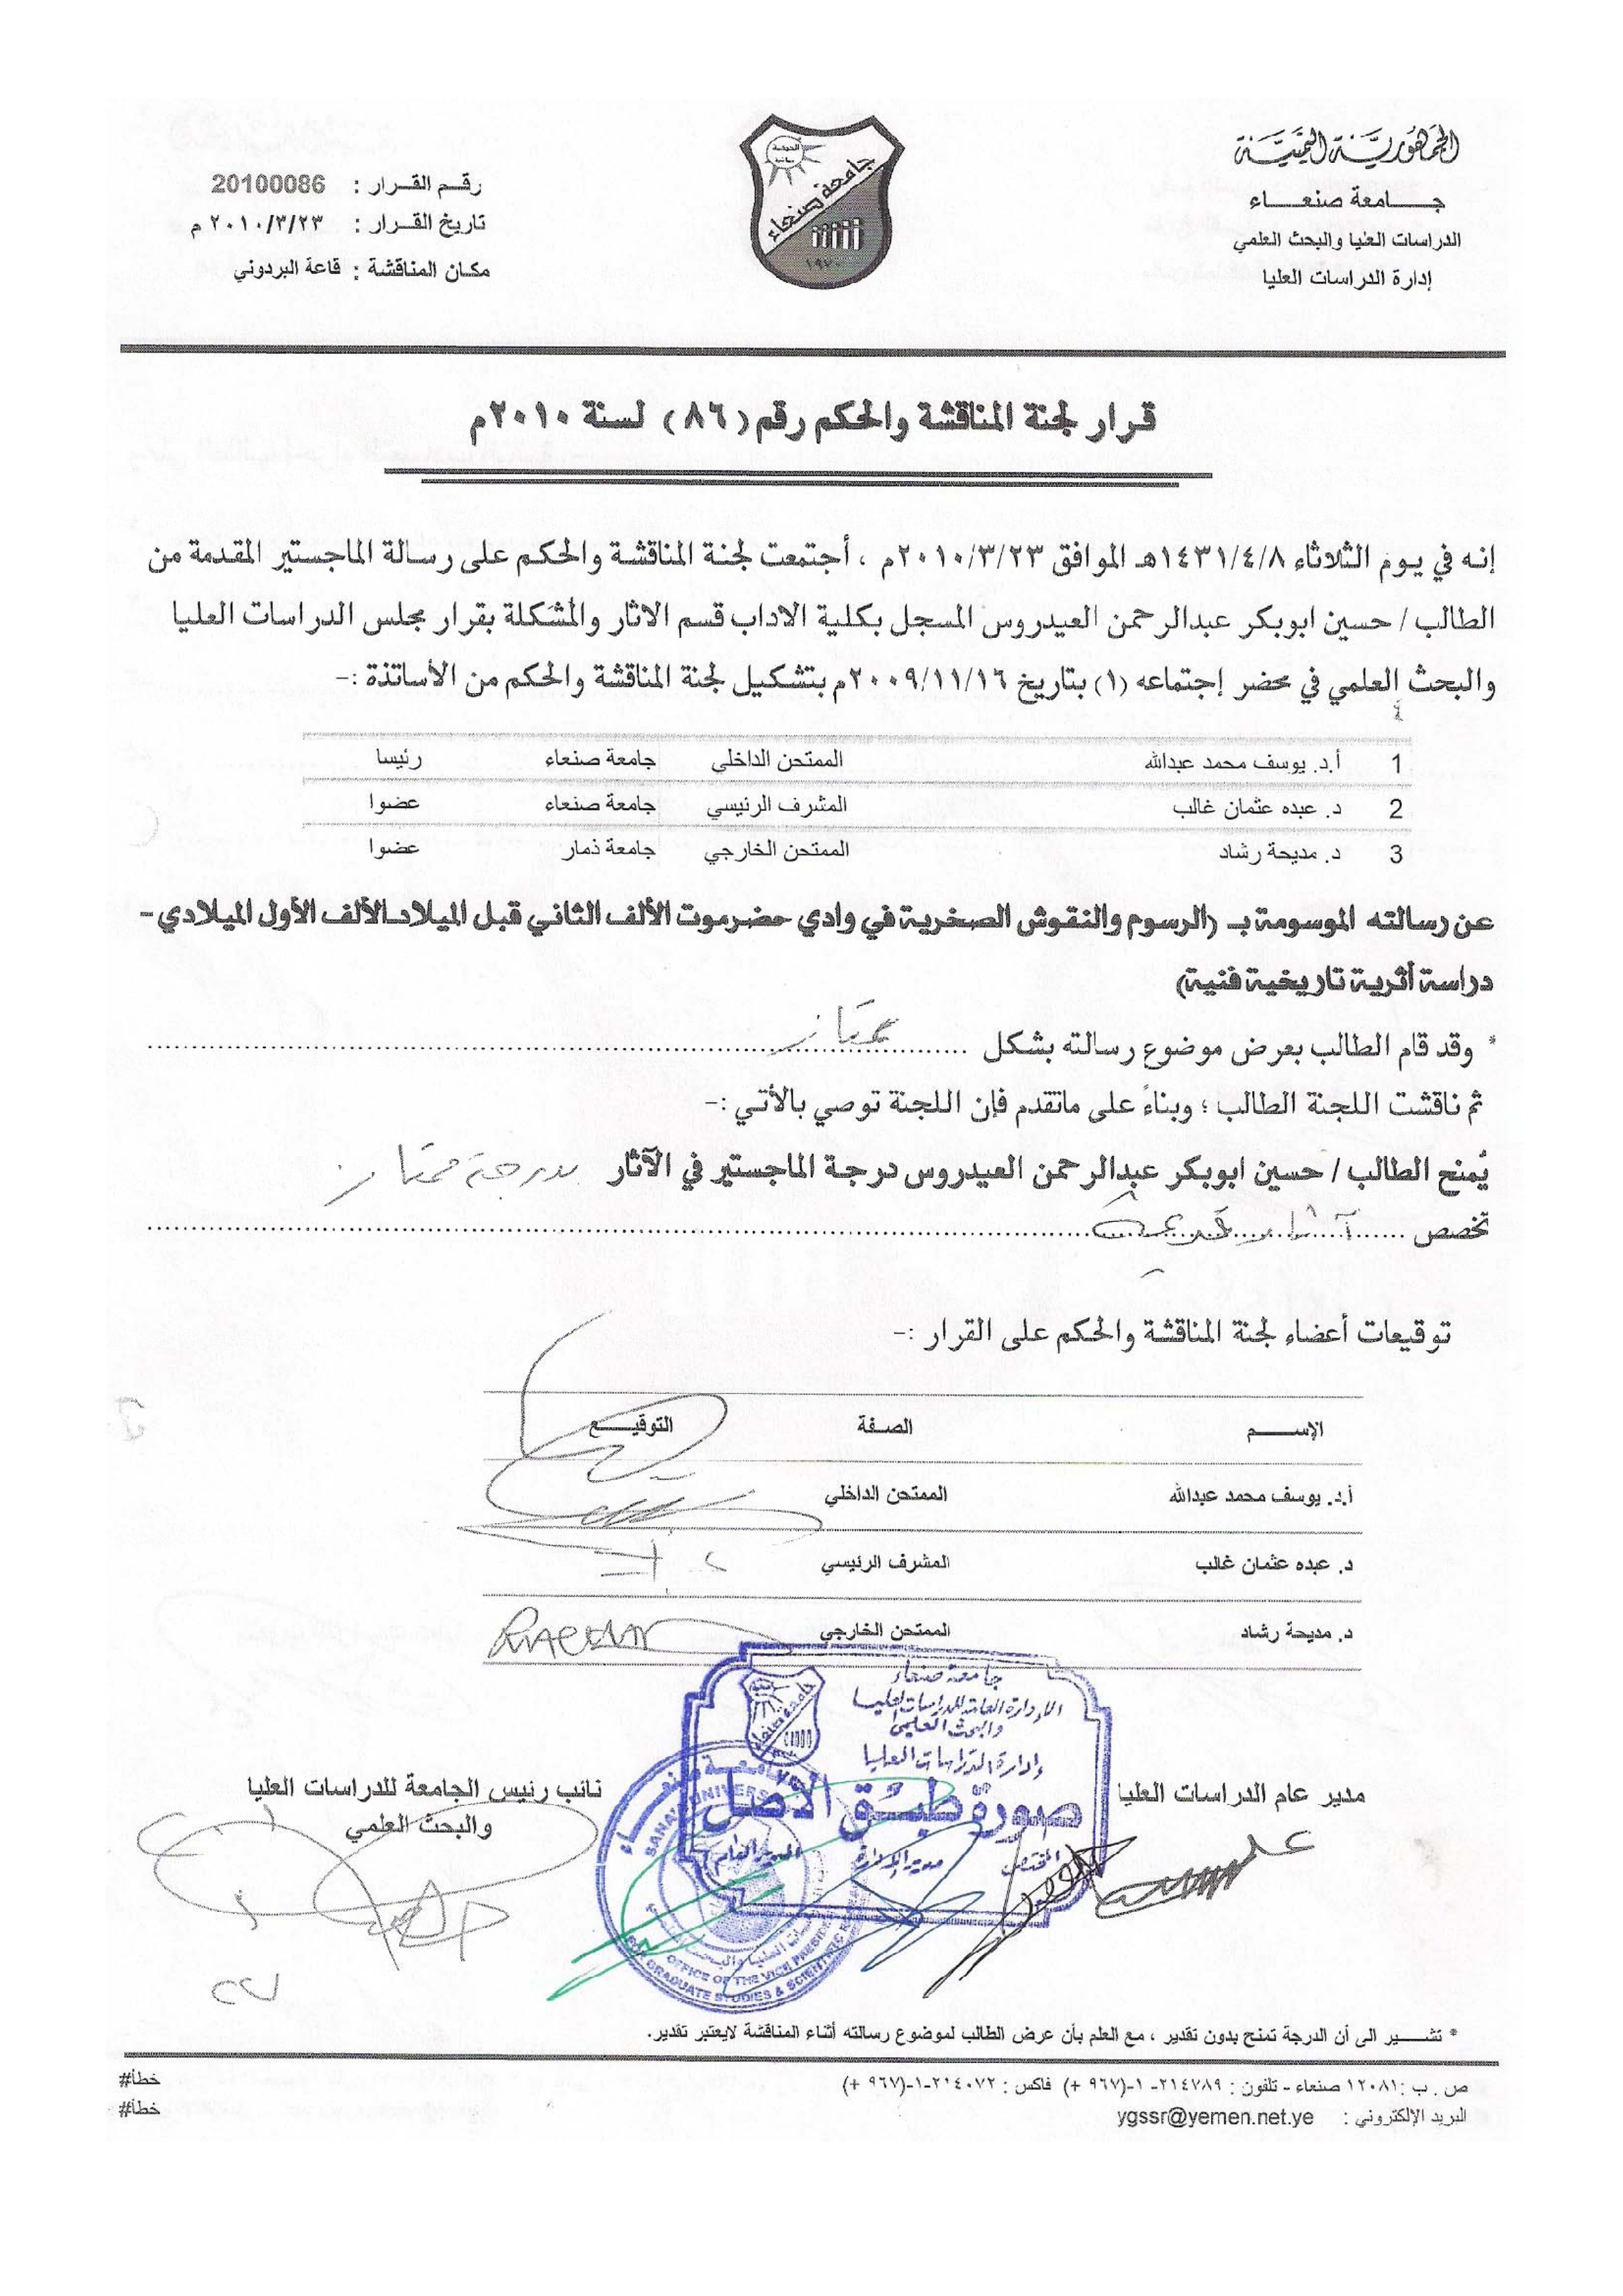 الجمهورية اليمنية
جـــامعة صنعـــاء
الدراسات العليا والبحث العلمي
إدارة الدراسات العليا
جامعة صنعاء
١٩٧٠
رقـم القـرار : 20100086
تاريخ القـرار : ٢٠١٠/٣/٢٣ م
مكـان المناقشة : قاعة البردوني
قـرار لجنة المناقشة والحكم رقم (٨٦) لسنة ٢٠١٠م
إنـه في يـوم الثلاثاء ١٤٣١/٤/٨هـ الموافق ٢٠١٠/٣/٢٣م ، أجتمعت لجنـة المناقشة والحكم على رسـالة الماجستير المقدمة من
الطالب / حسين ابوبكر عبدالرحمن العيدروس المسجل بكلية الاداب قسم الاثار والمُشكلة بقرار مجلس الدراسات العليا
والبحث العلمي في محضر إجتماعه (١) بتاريخ ٢٠٠٩/١١/١٦م بتشكيل لجنة المناقشة والحكم من الأساتذة :-
1 أ.د. يوسف محمد عبدالله الممتحن الداخلي جامعة صنعاء رئيسا
2 د. عبده عثمان غالب المشرف الرئيسي جامعة صنعاء عضوا
3 د. مديحة رشاد الممتحن الخارجي جامعة ذمار عضوا
عن رسالته الموسومة بـ (الرسوم والنقوش الصخرية في وادي حضرموت الألف الثاني قبل الميلاد-الألف الأول الميلادي-
دراسة أثرية تاريخية فنية)
* وقد قام الطالب بعرض موضوع رسالته بشكل ممتاز
ثم ناقشت اللجنة الطالب ؛ وبناءً على ماتقدم فإن اللجنة توصي بالأتي :-
يُمنح الطالب / حسين ابوبكر عبدالرحمن العيدروس درجة الماجستير في الآثار بدرجة ممتاز
تخصص آثار قديمة
توقيعات أعضاء لجنة المناقشة والحكم على القرار :-
الإســـم الصـفة التوقيـــع
أ.د. يوسف محمد عبدالله الممتحن الداخلي
د. عبده عثمان غالب المشرف الرئيسي
د. مديحة رشاد الممتحن الخارجي
جامعة صنعاء
الإدارة العامة للدراسات العليا
والبحث العلمي
إدارة الدراسات العليا
صورة طبق الأصل
المختص مدير الإدارة المدير العام
جامعة صنعاء
SANA'A UNIVERSITY
OFFICE OF THE VICE PRESIDENT
GRADUATE STUDIES & SCIENTIFIC
مدير عام الدراسات العليا
نائب رئيس الجامعة للدراسات العليا
والبحث العلمي
* تشـــير الى أن الدرجة تمنح بدون تقدير ، مع العلم بأن عرض الطالب لموضوع رسالته أثناء المناقشة لايعتبر تقدير.
ص . ب : ١٢٠٨١ صنعاء - تلفون : ٢١٤٧٨٩- ١-(٩٦٧ +) فاكس : ٢١٤٠٧٢-١-(٩٦٧ +)
البريد الإلكتروني : ygssr@yemen.net.ye
خطأ#
خطأ#